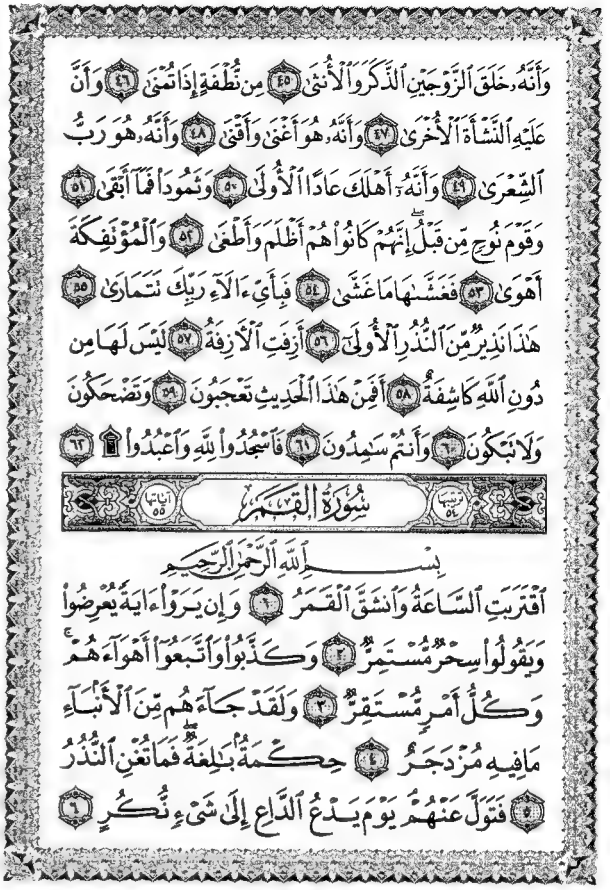 وَأَنَّهُۥ خَلَقَ ٱلزَّوْجَيْنِ ٱلذَّكَرَ وَٱلْأُنثَىٰ ٤٥ مِن نُّطْفَةٍ إِذَا تُمْنَىٰ ٤٦ وَأَنَّ
عَلَيْهِ ٱلنَّشْأَةَ ٱلْأُخْرَىٰ ٤٧ وَأَنَّهُۥ هُوَ أَغْنَىٰ وَأَقْنَىٰ ٤٨ وَأَنَّهُۥ هُوَ رَبُّ
ٱلشِّعْرَىٰ ٤٩ وَأَنَّهُۥٓ أَهْلَكَ عَادًا ٱلْأُولَىٰ ٥٠ وَثَمُودَا۟ فَمَآ أَبْقَىٰ ٥١
وَقَوْمَ نُوحٍ مِّن قَبْلُ ۖ إِنَّهُمْ كَانُوا۟ هُمْ أَظْلَمَ وَأَطْغَىٰ ٥٢ وَٱلْمُؤْتَفِكَةَ
أَهْوَىٰ ٥٣ فَغَشَّىٰهَا مَا غَشَّىٰ ٥٤ فَبِأَىِّ ءَالَآءِ رَبِّكَ تَتَمَارَىٰ ٥٥
هَٰذَا نَذِيرٌ مِّنَ ٱلنُّذُرِ ٱلْأُولَىٰٓ ٥٦ أَزِفَتِ ٱلْءَازِفَةُ ٥٧ لَيْسَ لَهَا مِن
دُونِ ٱللَّهِ كَاشِفَةٌ ٥٨ أَفَمِنْ هَٰذَا ٱلْحَدِيثِ تَعْجَبُونَ ٥٩ وَتَضْحَكُونَ
وَلَا تَبْكُونَ ٦٠ وَأَنتُمْ سَٰمِدُونَ ٦١ فَٱسْجُدُوا۟ لِلَّهِ وَٱعْبُدُوا۟ ۩ ٦٢
ترتيبها ٥٤ سُورَةُ القَمَر آياتها ٥٥
بِسْمِ ٱللَّهِ ٱلرَّحْمَٰنِ ٱلرَّحِيمِ
ٱقْتَرَبَتِ ٱلسَّاعَةُ وَٱنشَقَّ ٱلْقَمَرُ ١ وَإِن يَرَوْا۟ ءَايَةً يُعْرِضُوا۟
وَيَقُولُوا۟ سِحْرٌ مُّسْتَمِرٌّ ٢ وَكَذَّبُوا۟ وَٱتَّبَعُوٓا۟ أَهْوَآءَهُمْ ۚ
وَكُلُّ أَمْرٍ مُّسْتَقِرٌّ ٣ وَلَقَدْ جَآءَهُم مِّنَ ٱلْأَنۢبَآءِ
مَا فِيهِ مُزْدَجَرٌ ٤ حِكْمَةٌۢ بَٰلِغَةٌ ۖ فَمَا تُغْنِ ٱلنُّذُرُ
٥ فَتَوَلَّ عَنْهُمْ ۘ يَوْمَ يَدْعُ ٱلدَّاعِ إِلَىٰ شَىْءٍ نُّكُرٍ ٦